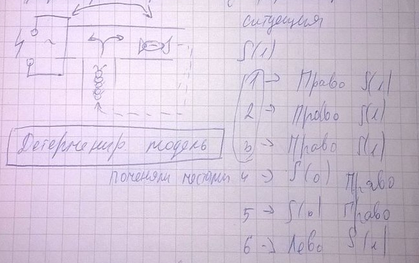 ситуация
S(1)
1 → Право S(1)
2 → Право S(1)
3 → Право S(1)
Детерменир модель
Поменяли местами 4 → S(0) Право
5 → S(0) Право
6 → Лево S(1)